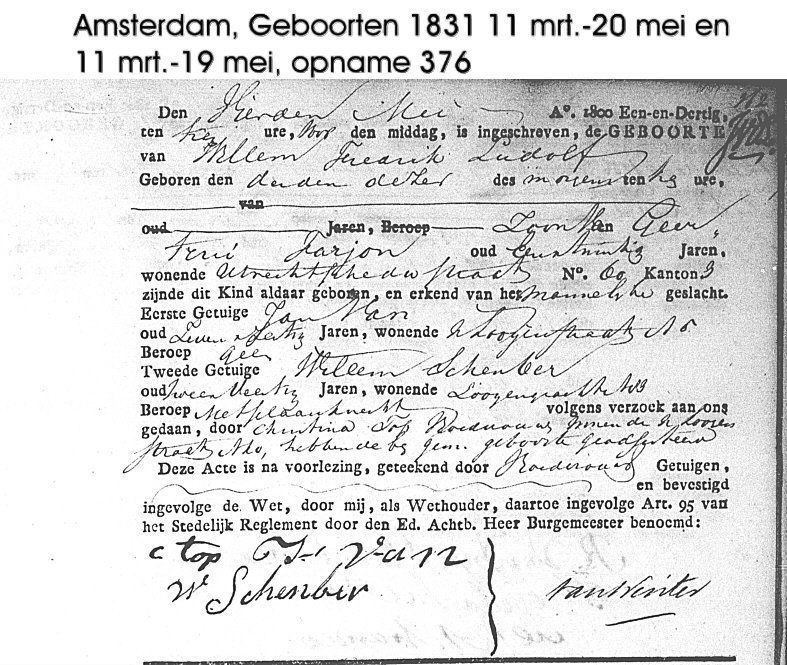 Amsterdam, Geboorten 1831 11 mrt.-20 mei en
11 mrt.-19 mei, opname 376
Den Vierden Mei A°. 1800 Een-en-Dertig,
ten ure, den middag, is ingeschreven, de GEBOORTE
van Willem Frederik Ludolf
Geboren den derden dezer des morgens ten ure,
van
oud Jaren, Beroep Zoon van Geer
Farjon oud Jaren,
wonende Utrechtschedwstraat N°. 60 Kanton 3
zijnde dit Kind aldaar geboren, en erkend van het mannelyke geslacht.
Eerste Getuige Jan Van
oud Zeven Jaren, wonende Looyerstraat N 6
Beroep Geen
Tweede Getuige Willem Schenber
oud twee Veertig Jaren, wonende
Beroep Metselaarsknecht volgens verzoek aan ons
gedaan, door Christina Top Vroedvrouw wonende
straat hebbende by gem. geboorte geadsisteerd
Deze Acte is na voorlezing, geteekend door Vroedvrouw Getuigen,
en bevestigd
ingevolge de Wet, door mij, als Wethouder, daartoe ingevolge Art. 95 van
het Stedelijk Reglement door den Ed. Achtb. Heer Burgemeester benoemd:
C top
Van
W Schenber
van Winter